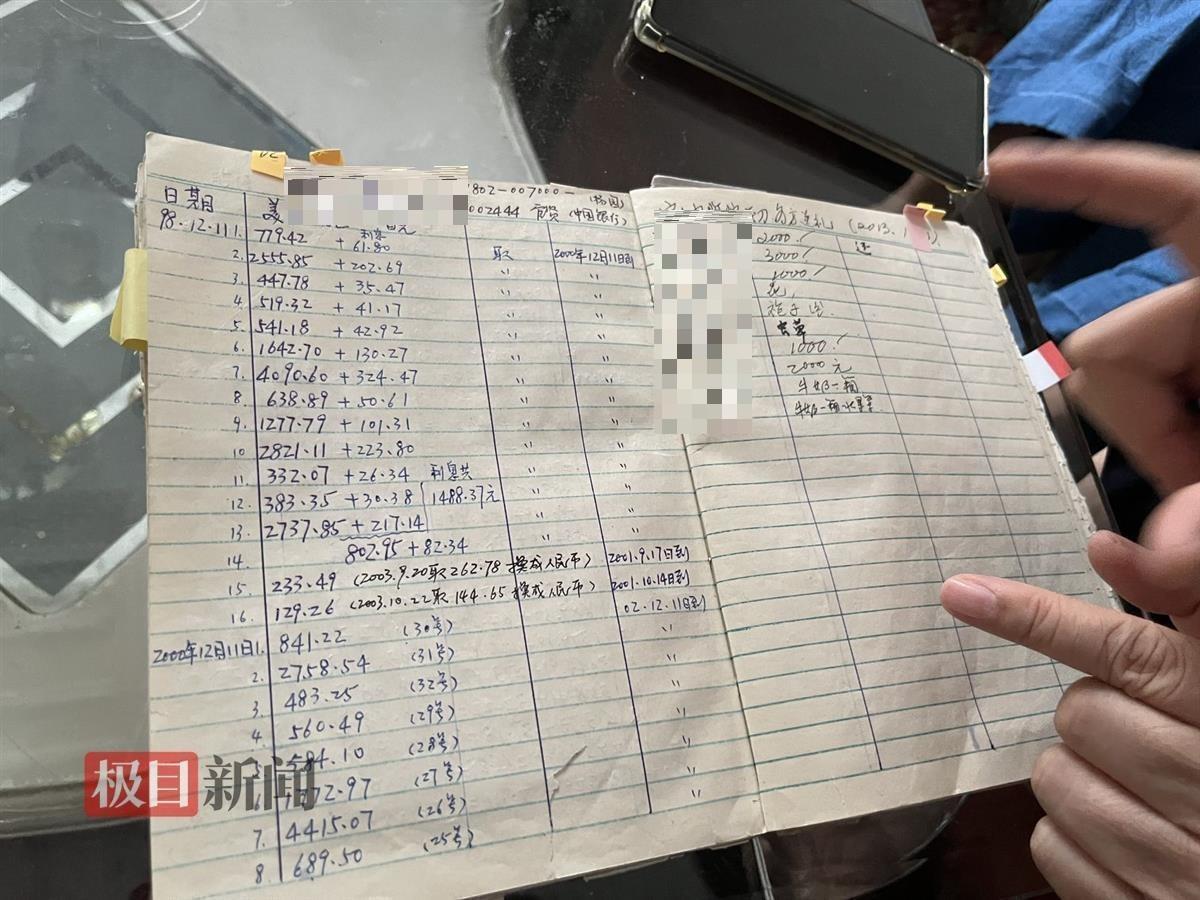 日期 美
802-007000-
002444 (中国银行)
98.12.11 1. 779.42 + 61.80 利息 取 2000年12月11日到
2. 2555.85 + 202.69 〃 〃
3. 447.78 + 35.47 〃 〃
4. 519.32 + 41.17 〃 〃
5. 541.18 + 42.92 〃 〃
6. 1642.70 + 130.27 〃 〃
7. 4090.60 + 324.47 〃 〃
8 638.89 + 50.61 〃 〃
9. 1277.79 + 101.31 〃 〃
10 2821.11 + 223.80 〃 〃
11. 332.07 + 26.34 利息共 〃 〃
12. 383.35 + 30.38 1488.37元 〃 〃
13. 2737.85 + 217.14 〃 〃
14 802.95 + 82.34
15. 233.49 (2003.9.20取262.78换成人民币) 2001.9.17日到
16. 129.26 (2003.10.22取144.65换成人民币) 2001.10.14日到
2000年12月11日1. 841.22 (30号) 02.12.11日到
2. 2758.54 (31号) 〃
3. 483.25 (32号) 〃
4. 560.49 (29号) 〃
584.10 (28号) 〃
72.97 (27号) 〃
7. 4415.07 (26号) 〃
8. 689.50 (25号) 〃
(2013.
2000
3000
1000
1000
2000元
牛奶一箱
牛奶一箱
极目新闻